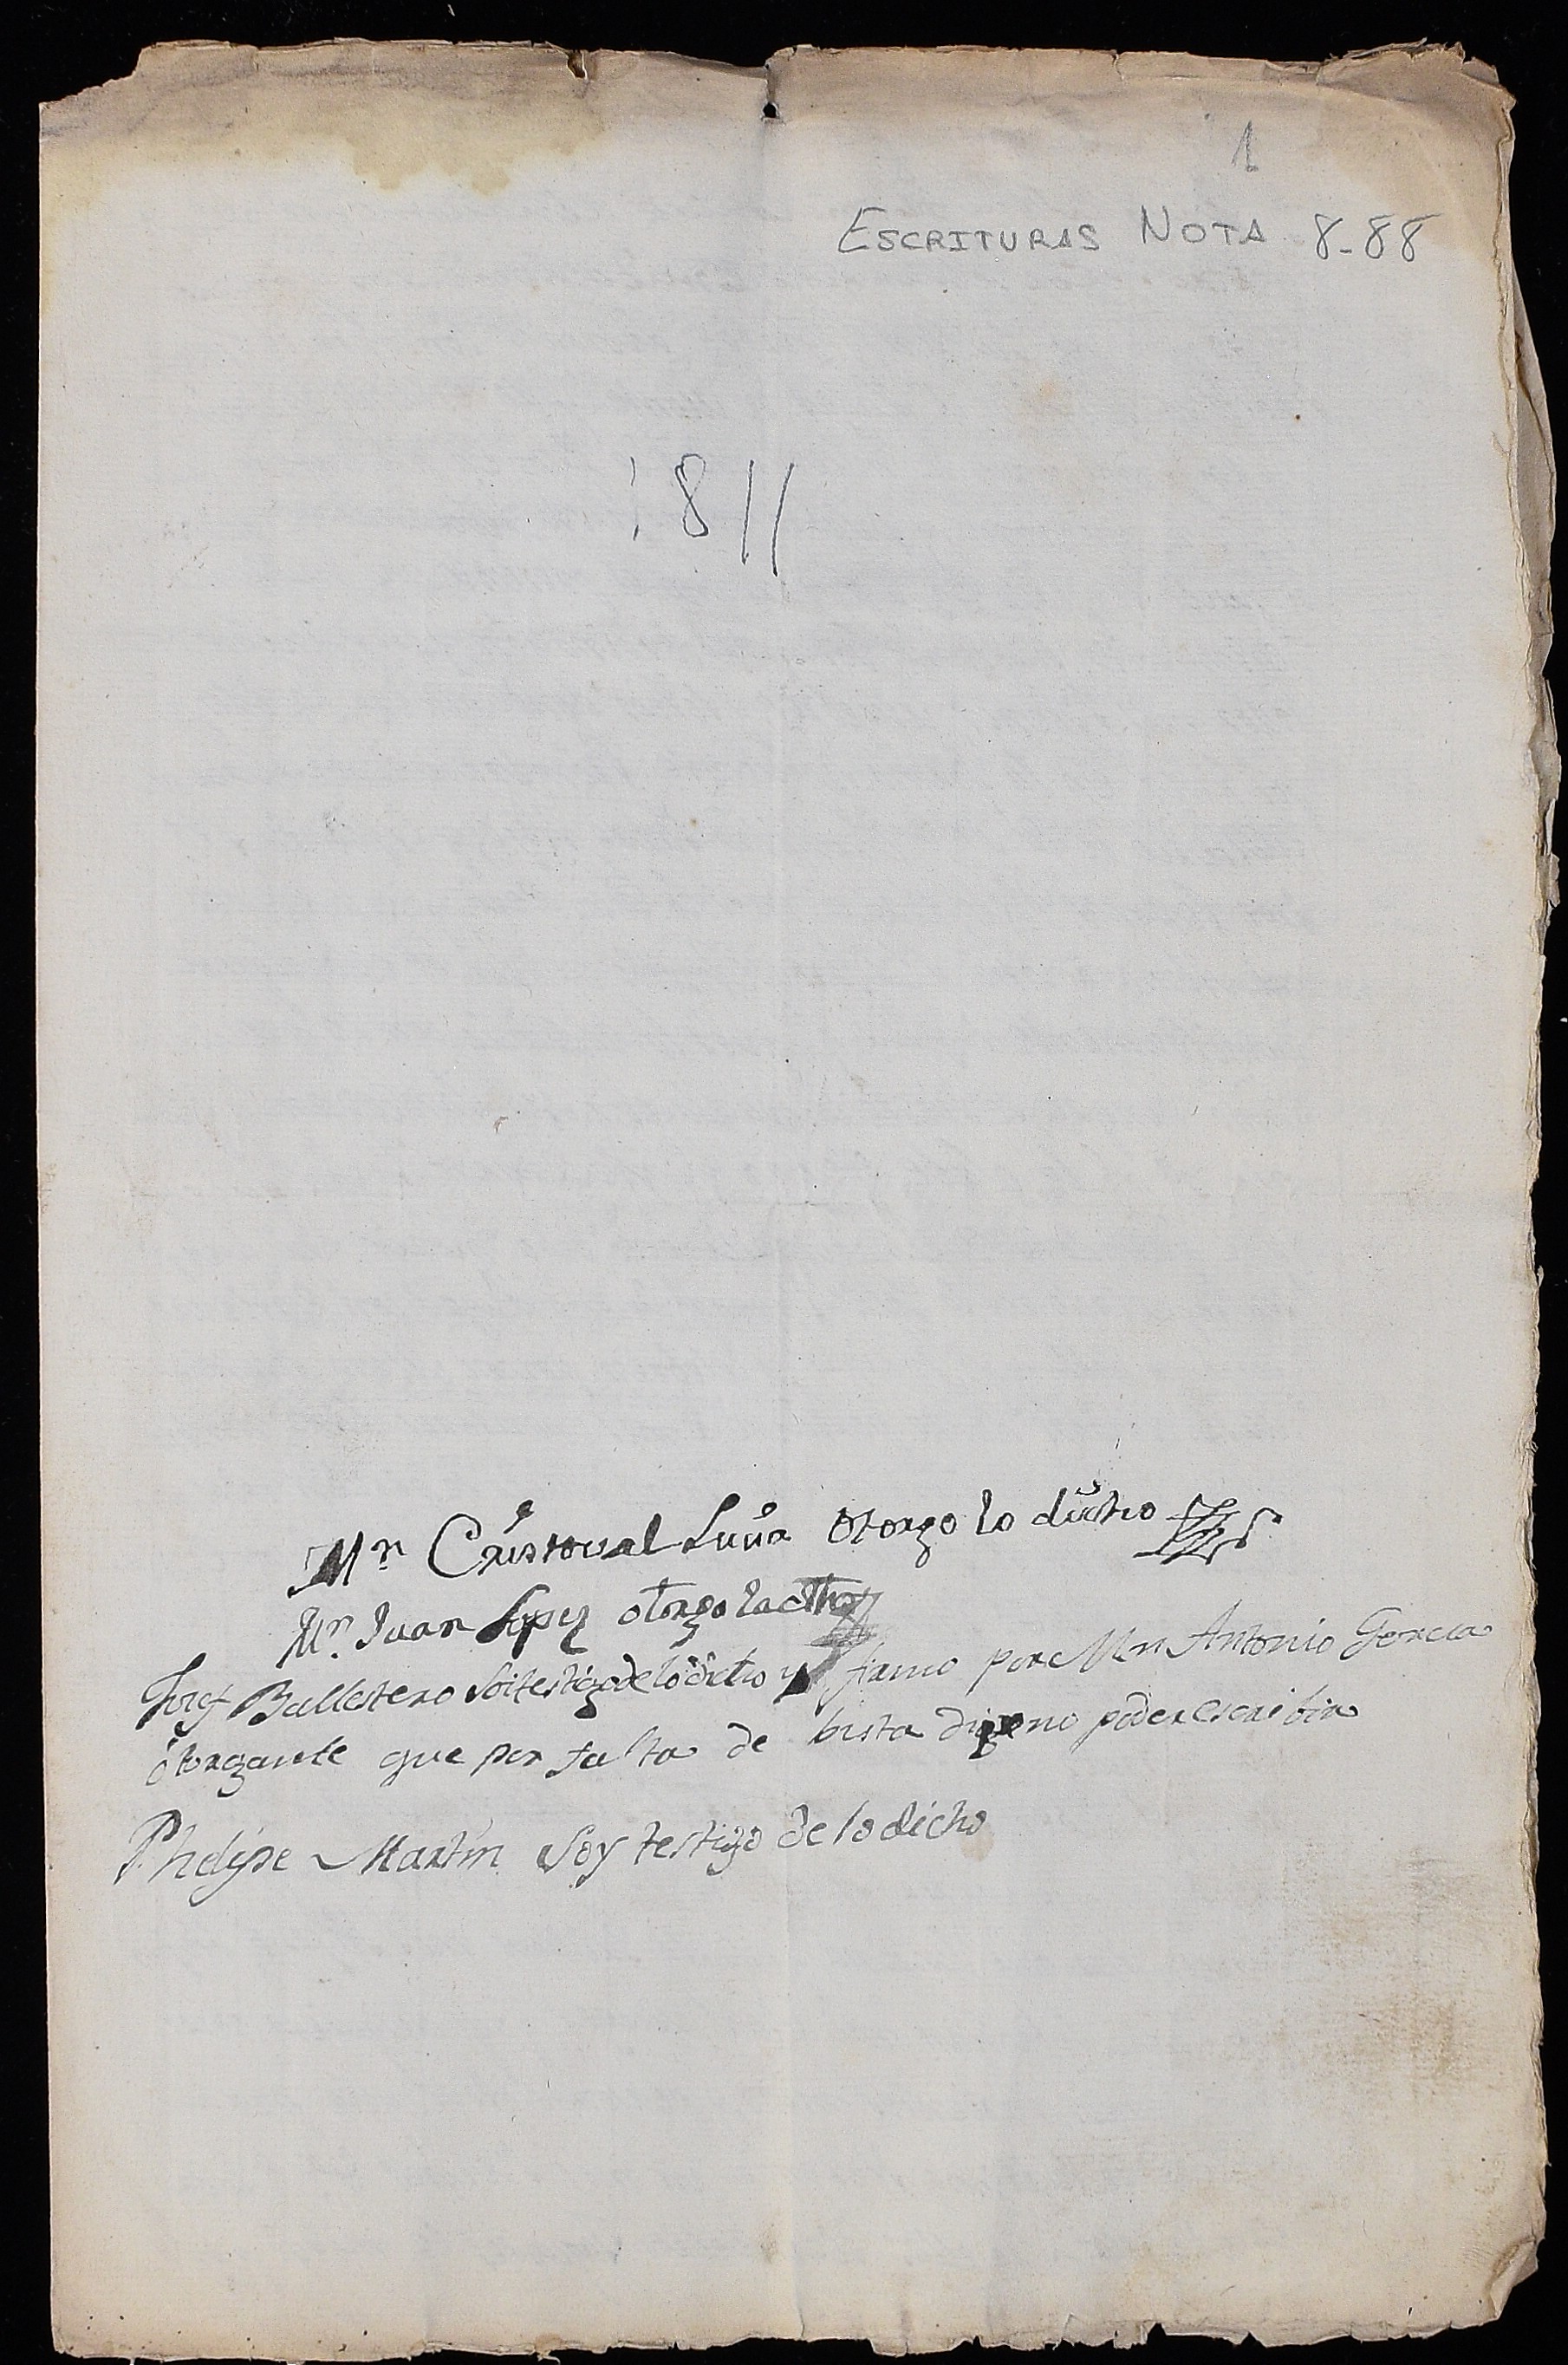 1
ESCRITURAS NOTA 8-88
1811
Mn Cristoual otorgo lo dicho
Mn Juan Lopez otorgo lo dicho
Josef Ballestero Soi testigo de lo dicho y firmo por Mn Antonio Garcia
otorgante que por falta de bista dijo no poder escribir
Phelipe Martin Soy testigo de lo dicho